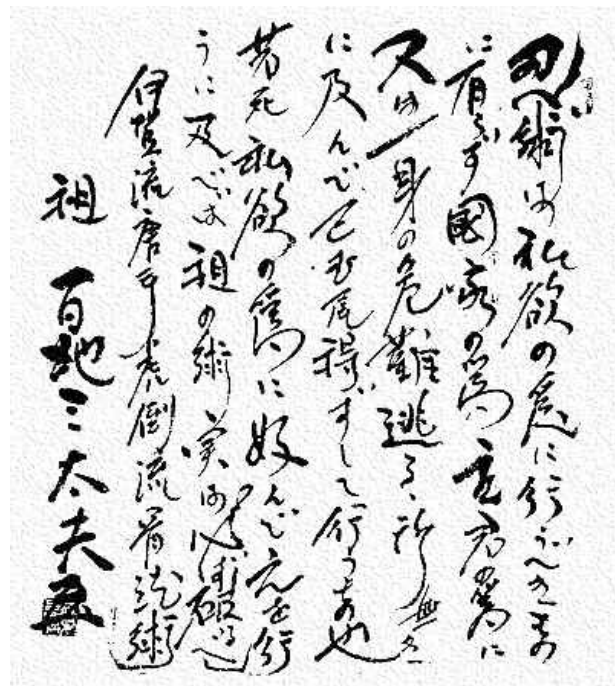 忍べ術は私欲の為に行うべきもの
に有らず國家の為主君の為に
又は一身の危難逃る、所無き
に及んで已む尾得ずして行うもの也
若死私欲の為に好んで之を行
うに及べば祖の術
伊賀流唐手虎倒流骨法術
祖 百地三太夫